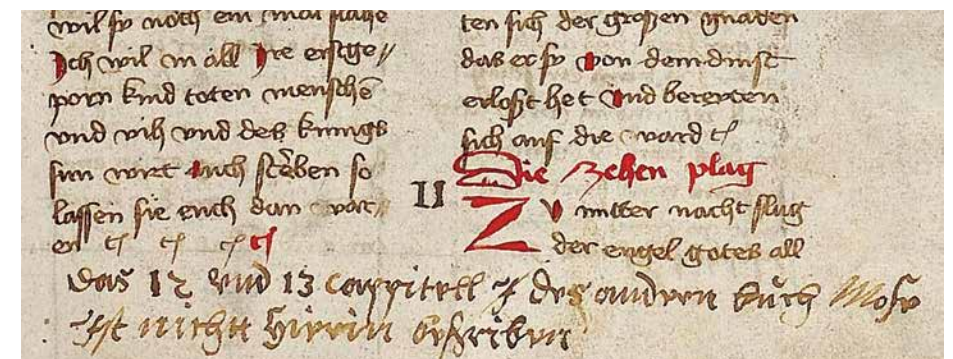 wil sy noch ein mal plage
Ich wil in all Ire erstge//
porn kind toten mensche
vnd vih vnd des kunigs
sun wirt auch sterben so
lassen sie euch dan var//
en
ten sich der großen gnaden
das er sy von dem dinst
erloset het vnd bereyten
sich auf die vard
Die zehen plag
II
ZV mitter nacht slug
der engel gotes all
das 12 vnd 13 cappittell des andren buch Mose
Ist nichtt hierin beschriben